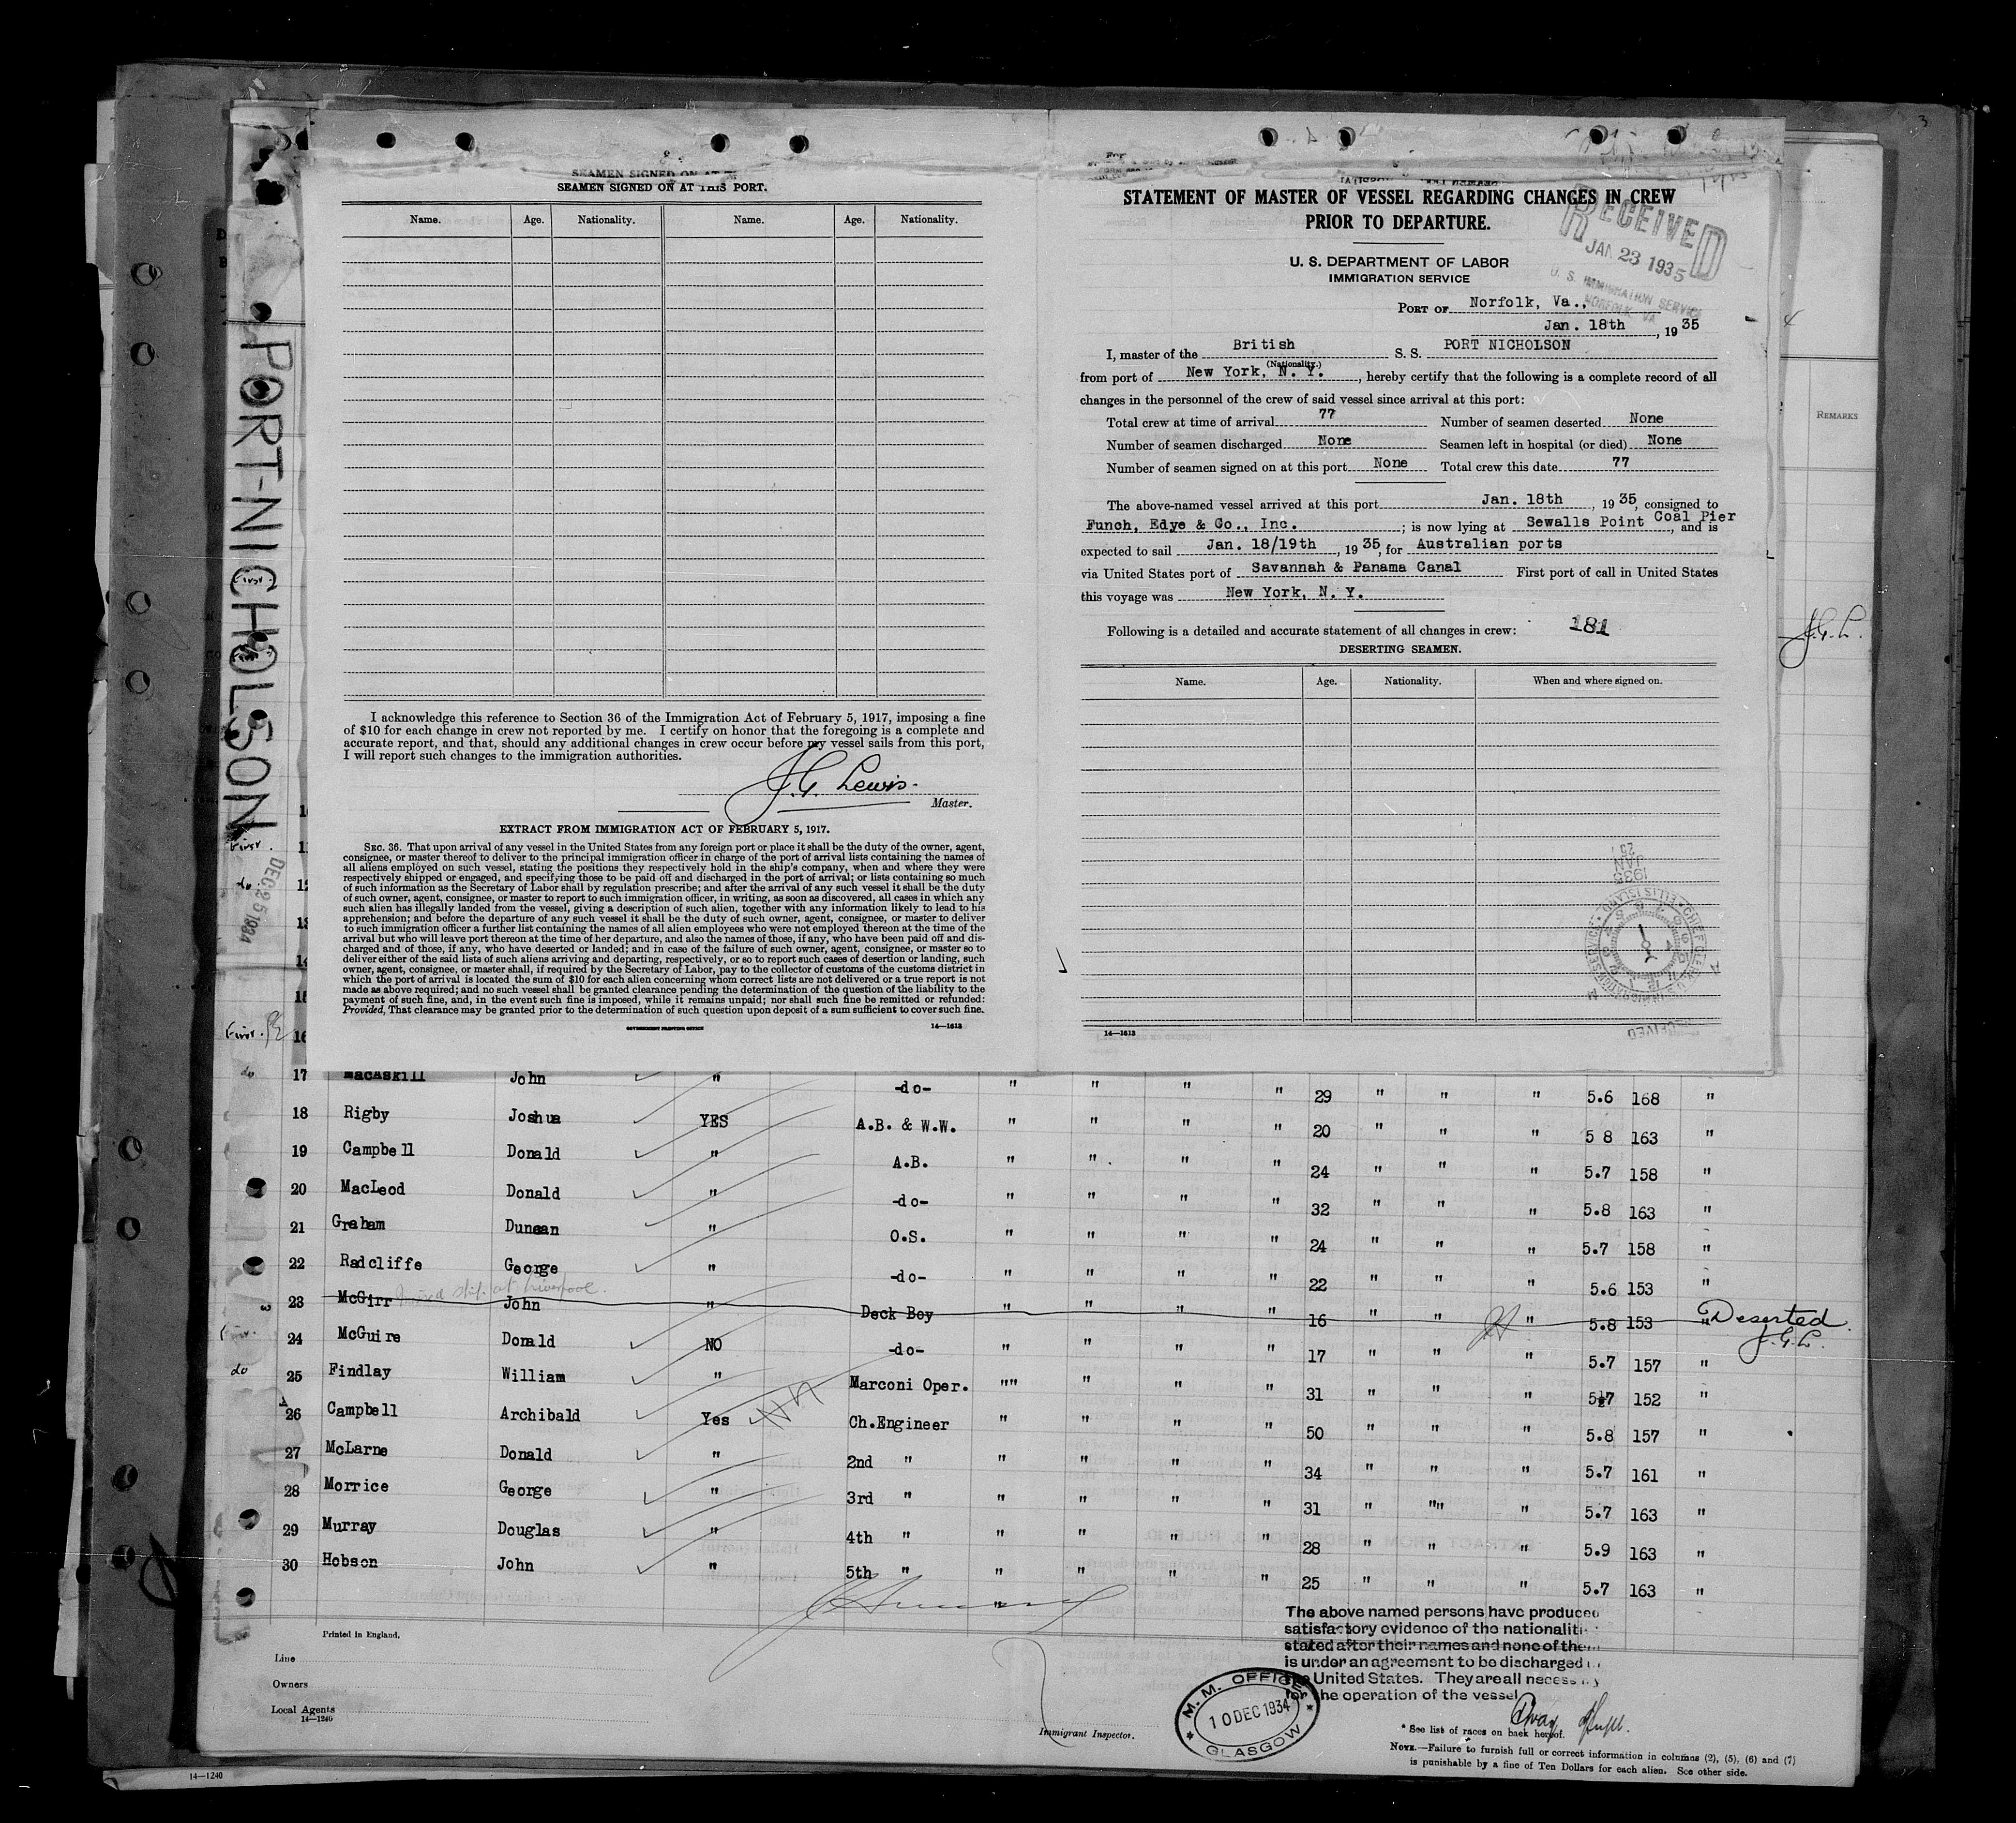 SEAMEN SIGNED ON AT THIS PORT.
Name. Age. Nationality. Name. Age. Nationality.
I acknowledge this reference to Section 36 of the Immigration Act of February 5, 1917, imposing a fine
of $10 for each change in crew not reported by me. I certify on honor that the foregoing is a complete and
accurate report, and that, should any additional changes in crew occur before my vessel sails from this port,
I will report such changes to the immigration authorities.
J. G. Lewis.
Master.
EXTRACT FROM IMMIGRATION ACT OF FEBRUARY 5, 1917.
SEC. 36. That upon arrival of any vessel in the United States from any foreign port or place it shall be the duty of the owner, agent,
consignee, or master thereof to deliver to the principal immigration officer in charge of the port of arrival lists containing the names of
all aliens employed on such vessel, stating the positions they respectively hold in the ship's company, when and where they were
respectively shipped or engaged, and specifying those to be paid off and discharged in the port of arrival; or lists containing so much
of such information as the Secretary of Labor shall by regulation prescribe; and after the arrival of any such vessel it shall be the duty
of such owner, agent, consignee, or master to report to such immigration officer, in writing, as soon as discovered, all cases in which any
such alien has illegally landed from the vessel, giving a description of such alien, together with any information likely to lead to his
apprehension; and before the departure of any such vessel it shall be the duty of such owner, agent, consignee, or master to deliver
to such immigration officer a further list containing the names of all alien employees who were not employed thereon at the time of the
arrival but who will leave port thereon at the time of her departure, and also the names of those, if any, who have been paid off and dis-
charged and of those, if any, who have deserted or landed; and in case of the failure of such owner, agent, consignee, or master so to
deliver either of the said lists of such aliens arriving and departing, respectively, or so to report such cases of desertion or landing, such
owner, agent, consignee, or master shall, if required by the Secretary of Labor, pay to the collector of customs of the customs district in
which the port of arrival is located the sum of $10 for each alien concerning whom correct lists are not delivered or a true report is not
made as above required; and no such vessel shall be granted clearance pending the determination of the question of the liability to the
payment of such fine, and, in the event such fine is imposed, while it remains unpaid; nor shall such fine be remitted or refunded:
Provided, That clearance may be granted prior to the determination of such question upon deposit of a sum sufficient to cover such fine.
GOVERNMENT PRINTING OFFICE 14—1613
STATEMENT OF MASTER OF VESSEL REGARDING CHANGES IN CREW
PRIOR TO DEPARTURE.
U. S. DEPARTMENT OF LABOR
IMMIGRATION SERVICE
RECEIVED
JAN 23 1935
U. S. IMMIGRATION SERVICE
NORFOLK VA
PORT OF Norfolk, Va.,
Jan. 18th, 1935
I, master of the British S. S. PORT NICHOLSON
(Nationality.)
from port of New York, N. Y., hereby certify that the following is a complete record of all
changes in the personnel of the crew of said vessel since arrival at this port:
Total crew at time of arrival 77 Number of seamen deserted None
Number of seamen discharged None Seamen left in hospital (or died) None
Number of seamen signed on at this port None Total crew this date 77
The above-named vessel arrived at this port Jan. 18th, 1935, consigned to
Funch, Edye & Co., Inc. ; is now lying at Sewalls Point Coal Pier, and is
expected to sail Jan. 18/19th, 1935, for Australian ports
via United States port of Savannah & Panama Canal First port of call in United States
this voyage was New York, N. Y.
Following is a detailed and accurate statement of all changes in crew: 181
DESERTING SEAMEN.
Name. Age. Nationality. When and where signed on.
14—1613
PORT-NICHOLSON
DEC 25 1934
REMARKS
J.G.L.
17 MacAskill John " -do- " " " " 29 " " " 5.6 168 "
18 Rigby Joshua YES A.B. & W.W. " " " " 20 " " " 5 8 163 "
19 Campbell Donald " A.B. " " " " 24 " " " 5.7 158 "
20 MacLeod Donald " -do- " " " " 32 " " " 5.8 163 "
21 Graham Duncan " O.S. " " " " 24 " " " 5.7 158 "
22 Radcliffe George " -do- " " " " 22 " " " 5.6 153 "
23 McGirr John " Deck Boy " " " " 16 " " " 5.8 153 " Deserted
ship at Liverpool.
J.G.L.
24 McGuire Donald NO -do- " " " " 17 " " " 5.7 157 "
25 Findlay William " Marconi Oper. "" " " " 31 " " " 5½7 152 "
26 Campbell Archibald Yes Ch.Engineer " " " " 50 " " " 5.8 157 "
27 McLarne Donald " 2nd " " " " " 34 " " " 5.7 161 "
28 Morrice George " 3rd " " " " " 31 " "" " 5.7 163 "
29 Murray Douglas " 4th " " " " " 28 " " " 5.9 163 "
30 Hobson John " 5th " " " " " 25 " " " 5.7 163 "
Printed in England.
Line
Owners
Local Agents
14—1240
Immigrant Inspector.
M. M. OFFICE
10 DEC 1934
GLASGOW
The above named persons have produced
satisfactory evidence of the nationaliti
stated after their names and none of them
is under an agreement to be discharged
United States. They are all necess
for the operation of the vessel
* See list of races on back hereof.
NOTE.—Failure to furnish full or correct information in columns (2), (5), (6) and (7)
is punishable by a fine of Ten Dollars for each alien. See other side.
14—1240